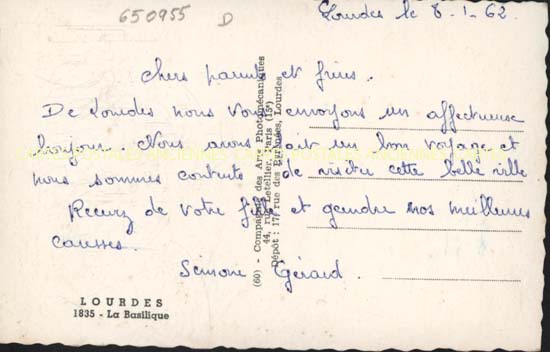 650955 D
Lourdes le 8-1-62
Chers parents et frères.
De Lourdes nous vous envoyons un affectueuse
bonjour. Nous avons fait un bon voyage et
nous sommes contents de visiter cette belle ville
Recevez de votre fille et gendre nos meilleures
caresses.
Simone Gérard.
(60) - Compagnie des Arts Photomécaniques
44, rue Letellier, Paris (15e)
Dépôt : 17, rue des Pyrénées, Lourdes
LOURDES
1835 - La Basilique